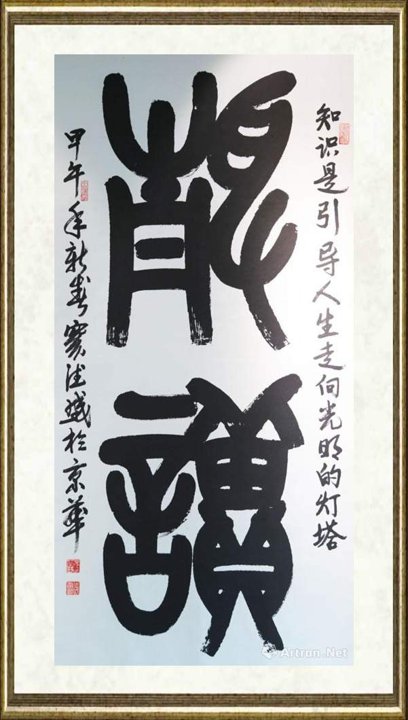 知识是引导人生走向光明的灯塔
靜讀
甲午年新春於京華
Artron.Net